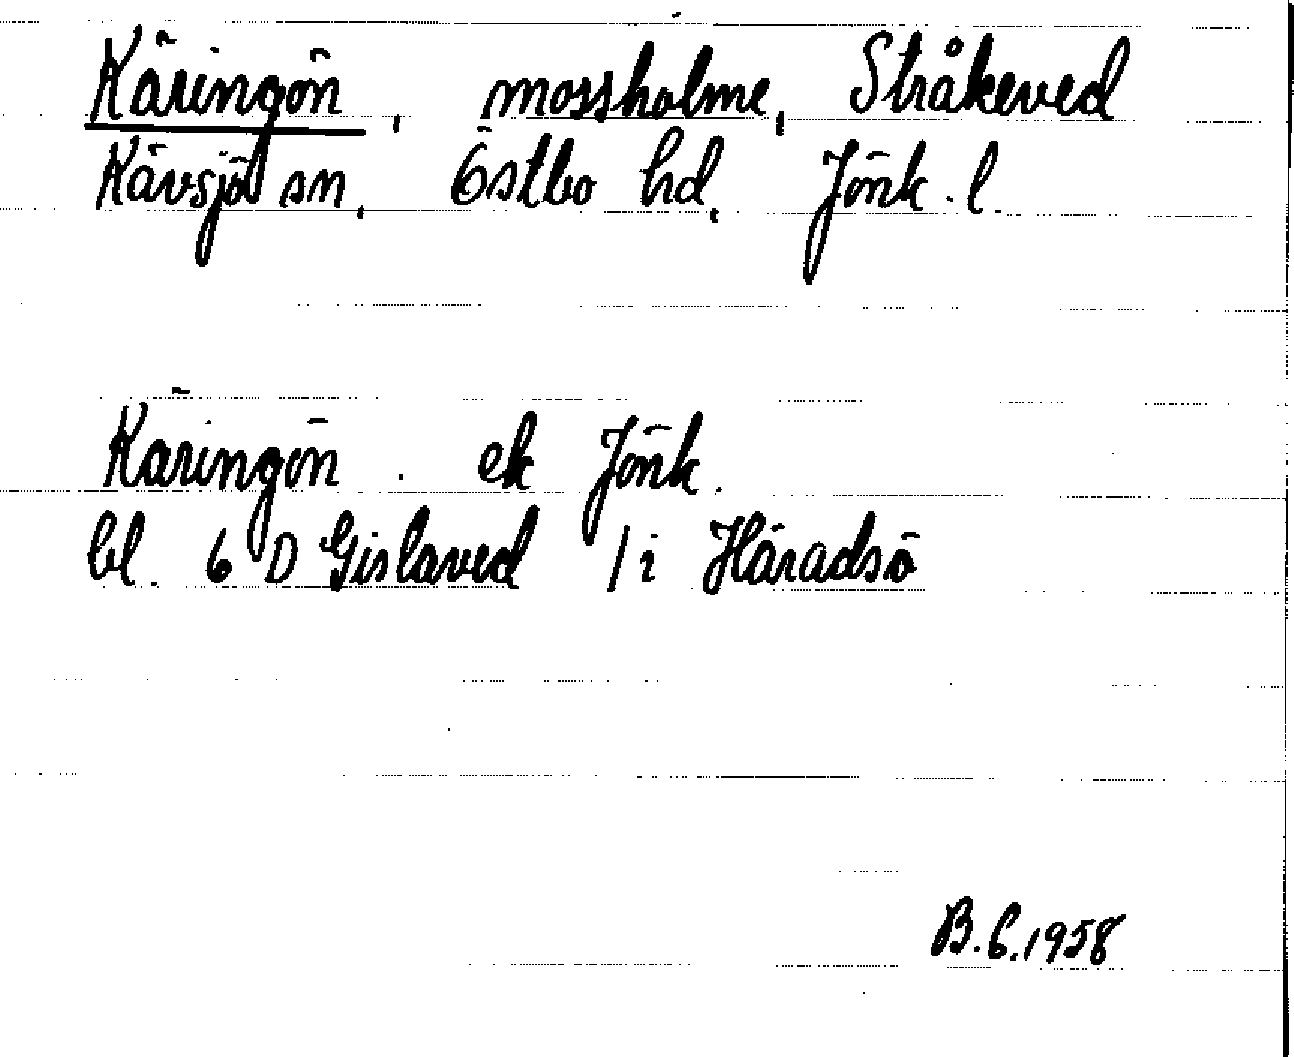 Käringön, mossholme, Stråkeved
Kävsjö sn, Östbo hd, Jönk. l.
Käringön. ek Jönk.
bl. 6 D Gislaved /i Häradsö
B.G.1958